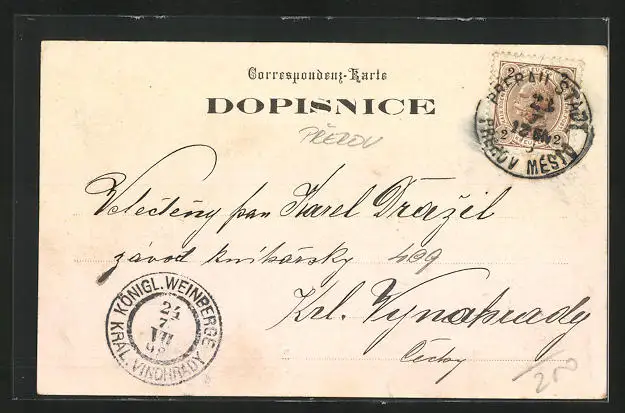 Correspondenz-Karte
DOPISNICE
PŘEROV
2 2
2 2
PRERAU STADT
24
7
PŘEROV MĚSTO
Velectěný pan Karel Dražil
závod knihařský 499
Krl. Vynohrady
Čechy
KÖNIGL. WEINBERGE
24
7
VII
98
KRÁL. VINOHRADY
/200